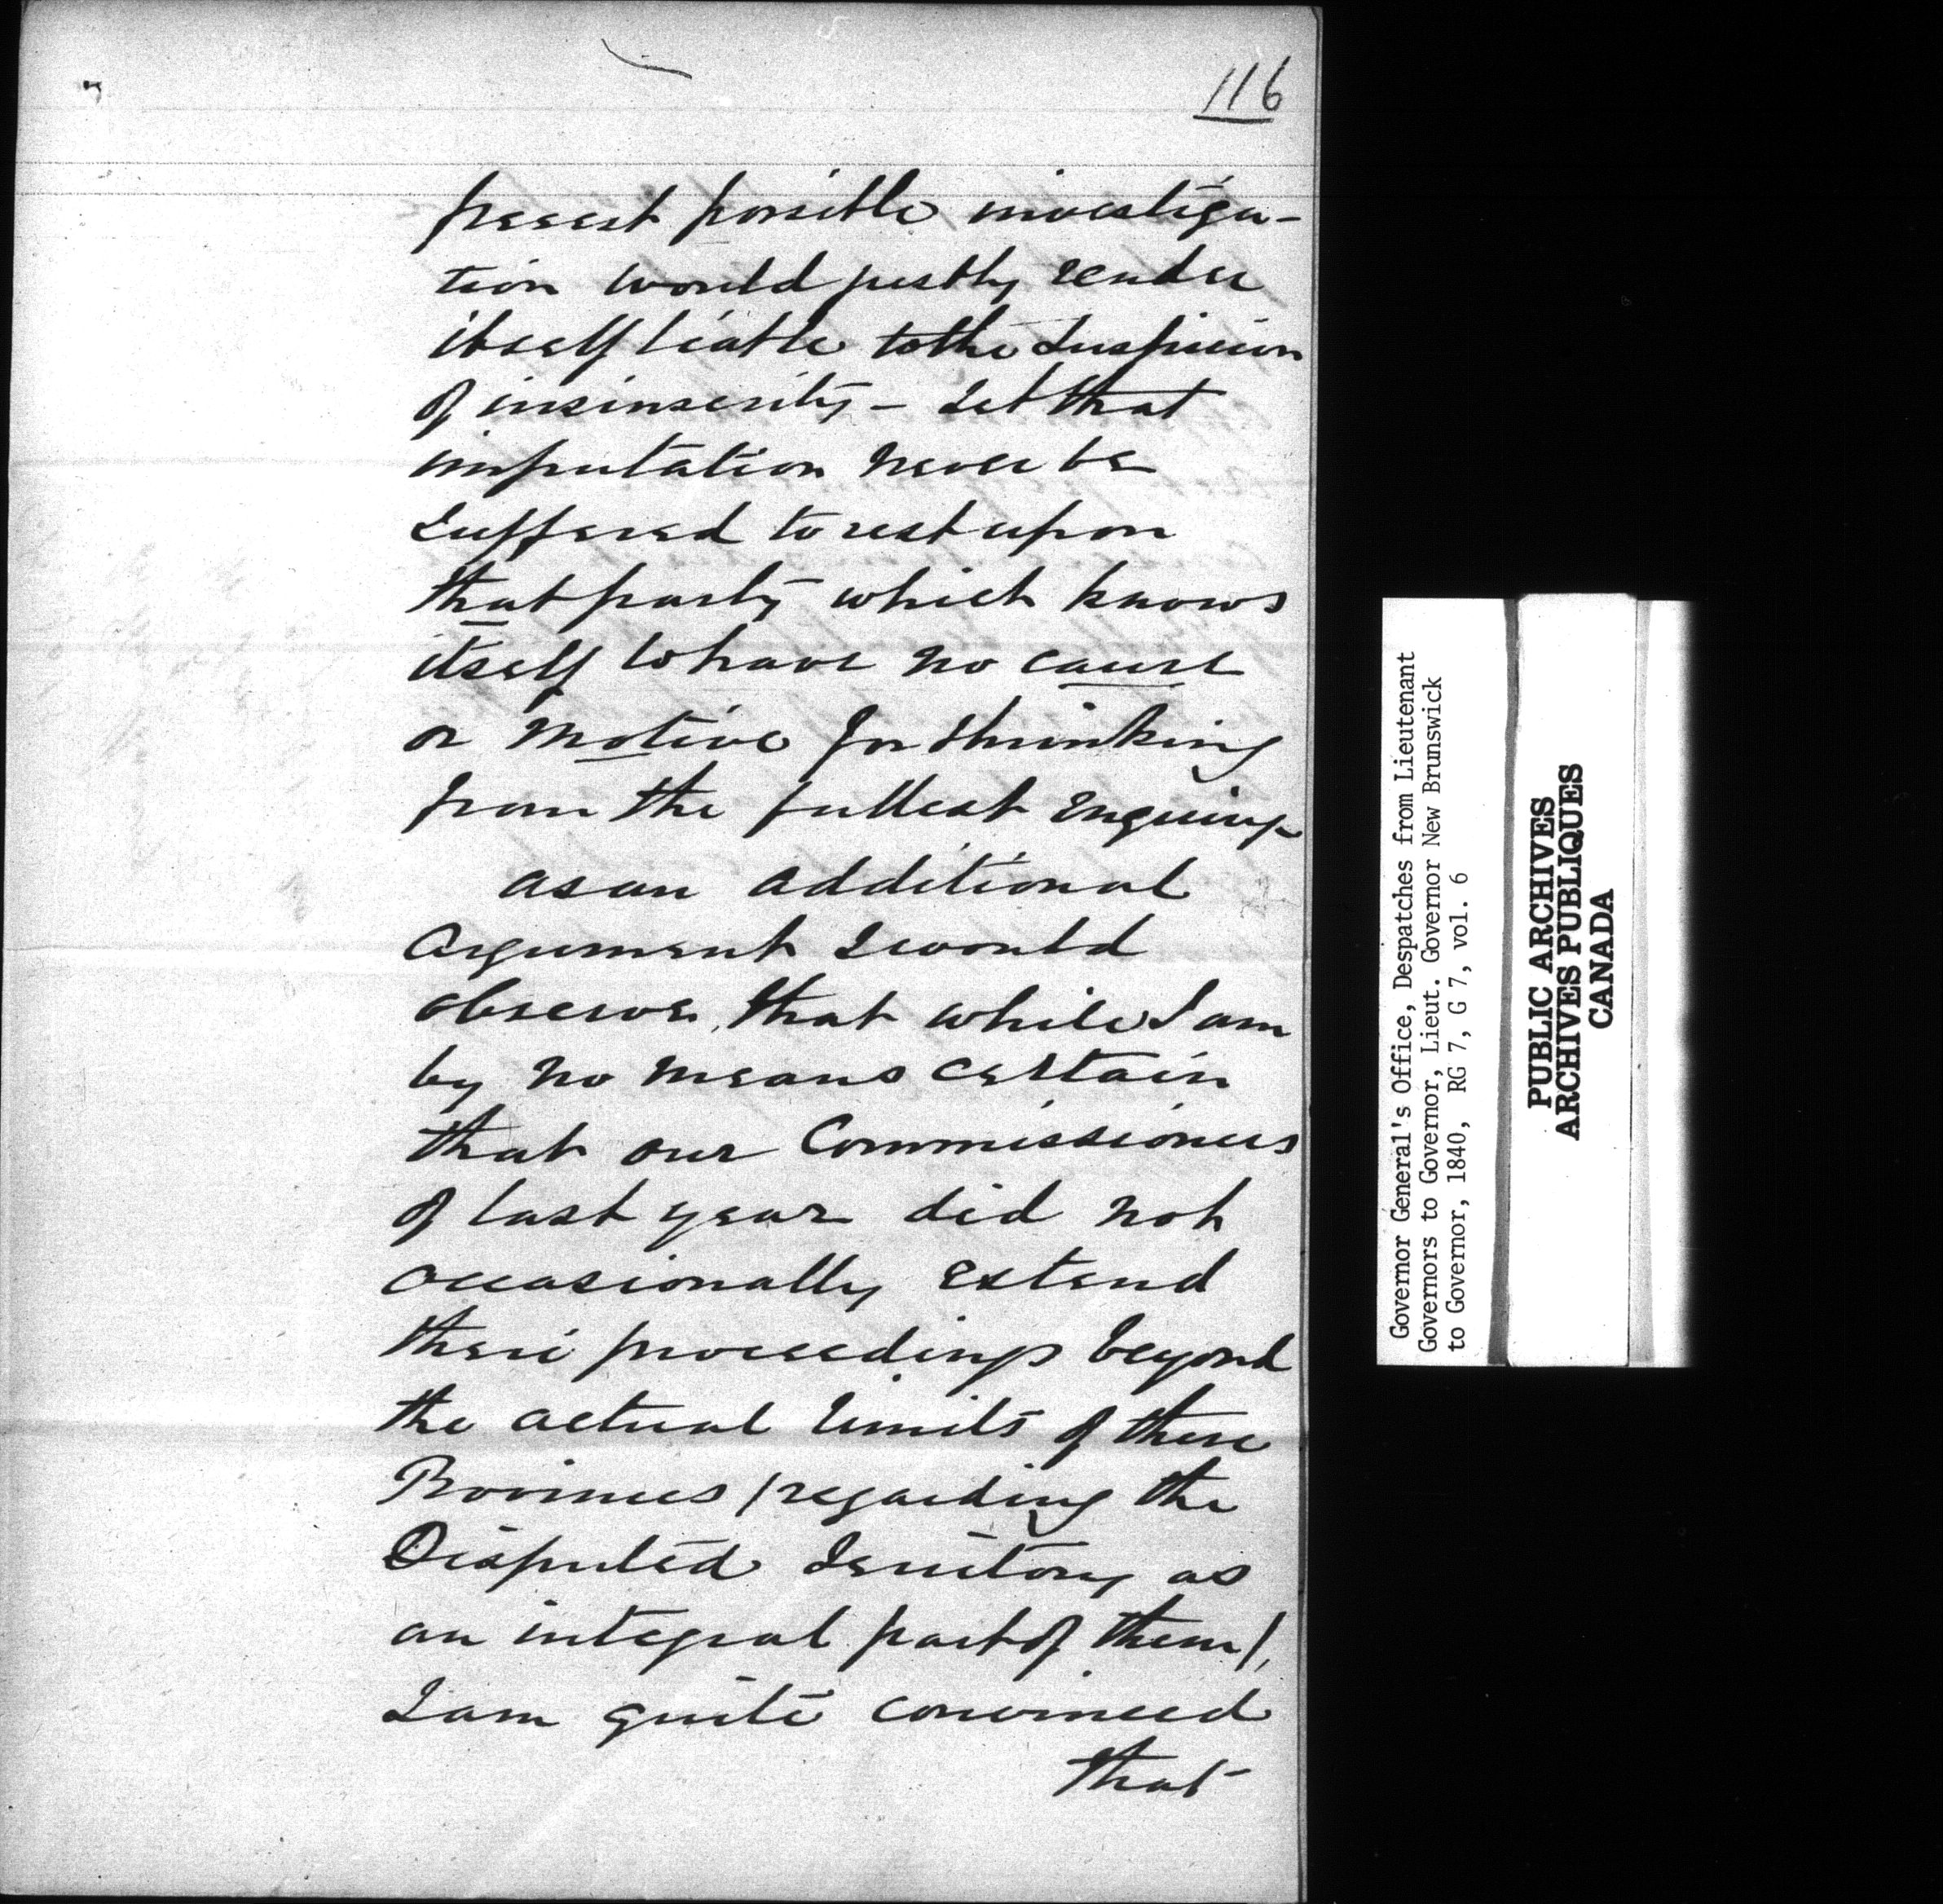 116
present possible investiga-
tion would justly render
itself liable to the Suspicion
of insinserity – Let that
imputation never be
Suffered to rest upon
that party which knows
itself to have no cause
or motive for shrinking
from the fullest enquiry
as an additional
Argument I would
observe, that while I am
by no means certain
that our Commissioners
of last year did not
occasionally extend
their proceedings beyond
the actual limits of these
Provinces /regarding the
Disputed Territory as
an integral part of them/,
I am quite convinced
that
Governor General's Office, Despatches from Lieutenant
Governors to Governor, Lieut. Governor New Brunswick
to Governor, 1840, RG 7, G 7, vol. 6
PUBLIC ARCHIVES
ARCHIVES PUBLIQUES
CANADA